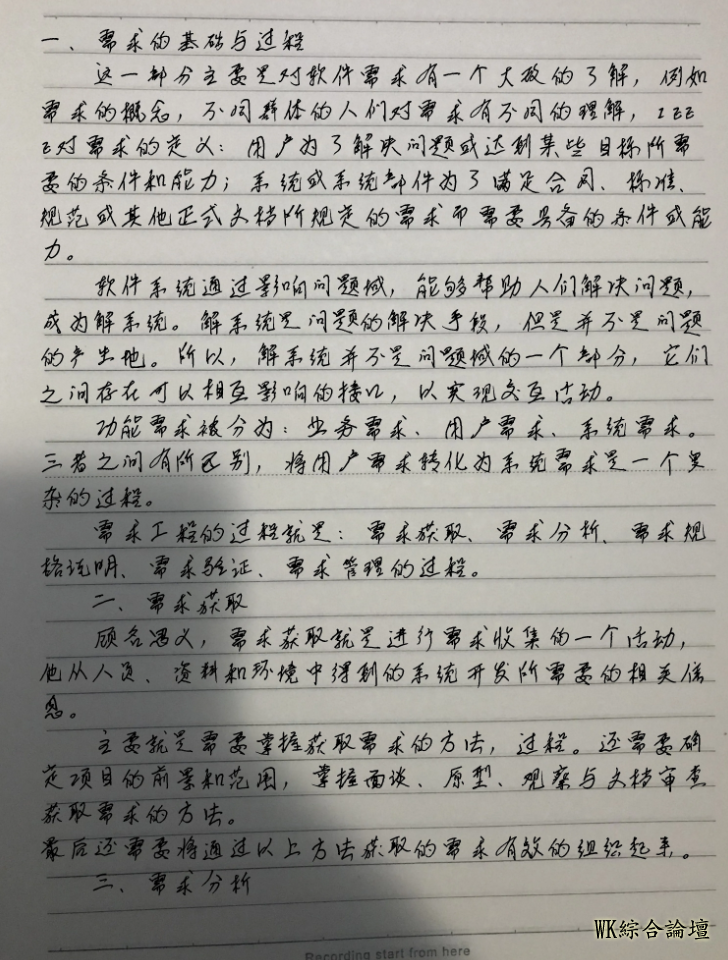 一、需求的基础与过程
这一部分主要是对软件需求有一个大致的了解，例如
需求的概念，不同群体的人们对需求有不同的理解，IEE
E对需求的定义：用户为了解决问题或达到某些目标所需
要的条件和能力；系统或系统部件为了满足合同、标准、
规范或其他正式文档所规定的需求而需要具备的条件或能
力。
软件系统通过影响问题域，能够帮助人们解决问题，
成为解系统。解系统是问题的解决手段，但是并不是问题
的产生地。所以，解系统并不是问题域的一个部分，它们
之间存在可以相互影响的接口，以实现交互活动。
功能需求被分为：业务需求、用户需求、系统需求。
三者之间有所区别，将用户需求转化为系统需求是一个复
杂的过程。
需求工程的过程就是：需求获取、需求分析、需求规
格说明、需求验证、需求管理的过程。
二、需求获取
顾名思义，需求获取就是进行需求收集的一个活动，
他从人员、资料和环境中得到的系统开发所需要的相关信
息。
主要就是需要掌握获取需求的方法，过程。还需要确
定项目的前景和范围，掌握面谈、原型、观察与文档审查
获取需求的方法。
最后还需要将通过以上方法获取的需求有效的组织起来。
三、需求分析
Recording start from here
WK綜合論壇